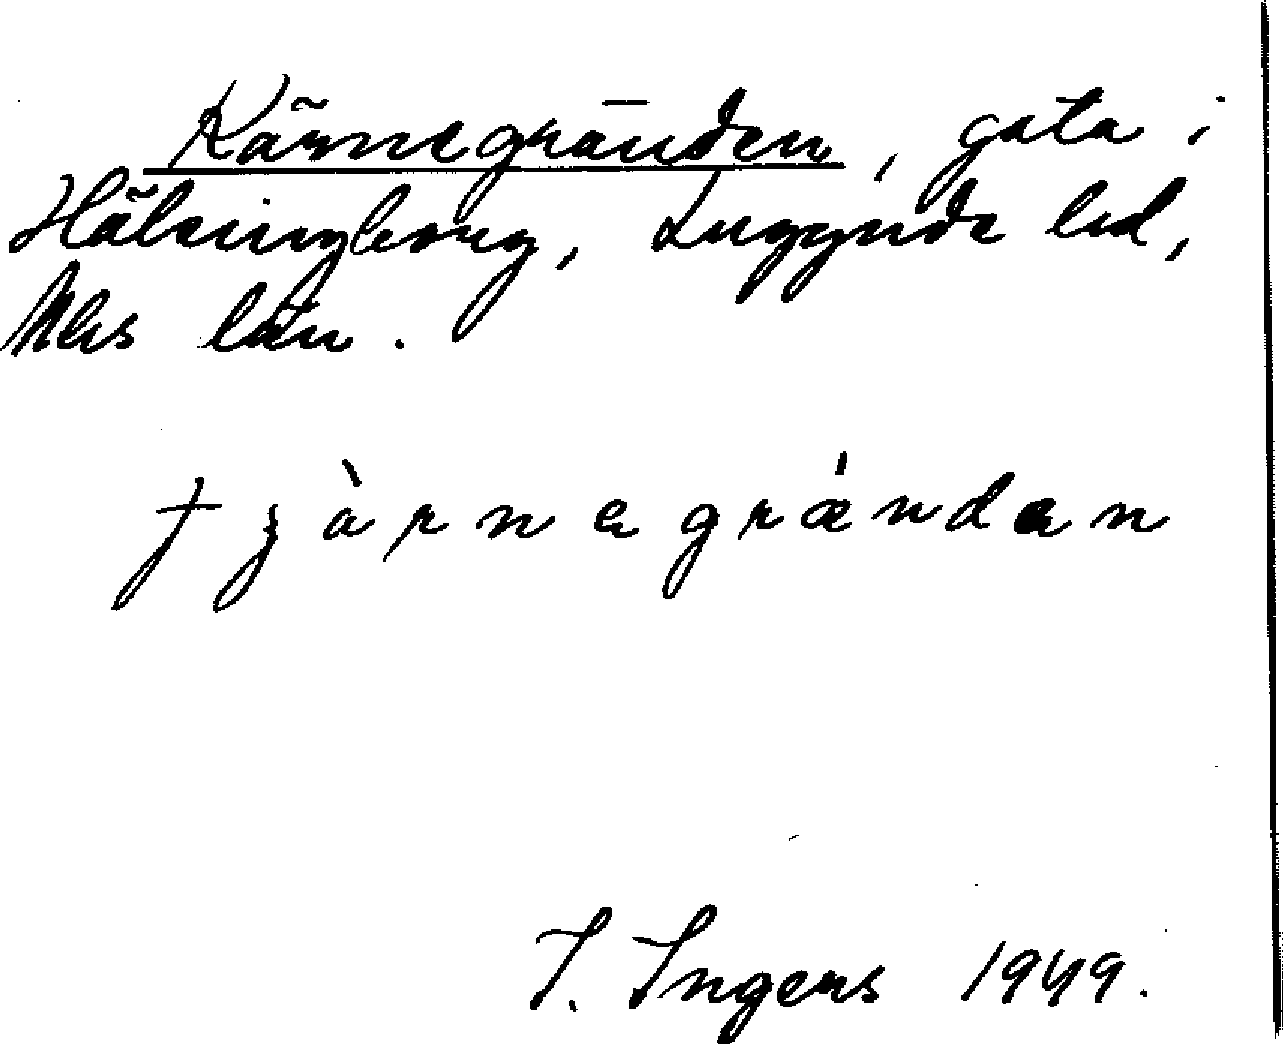 Kärnegränden, gata i
Hälsingborg, Luggude hd,
Mhs län.
t ʒ à r n e g r ǽ n d a n
I. Ingers 1949.